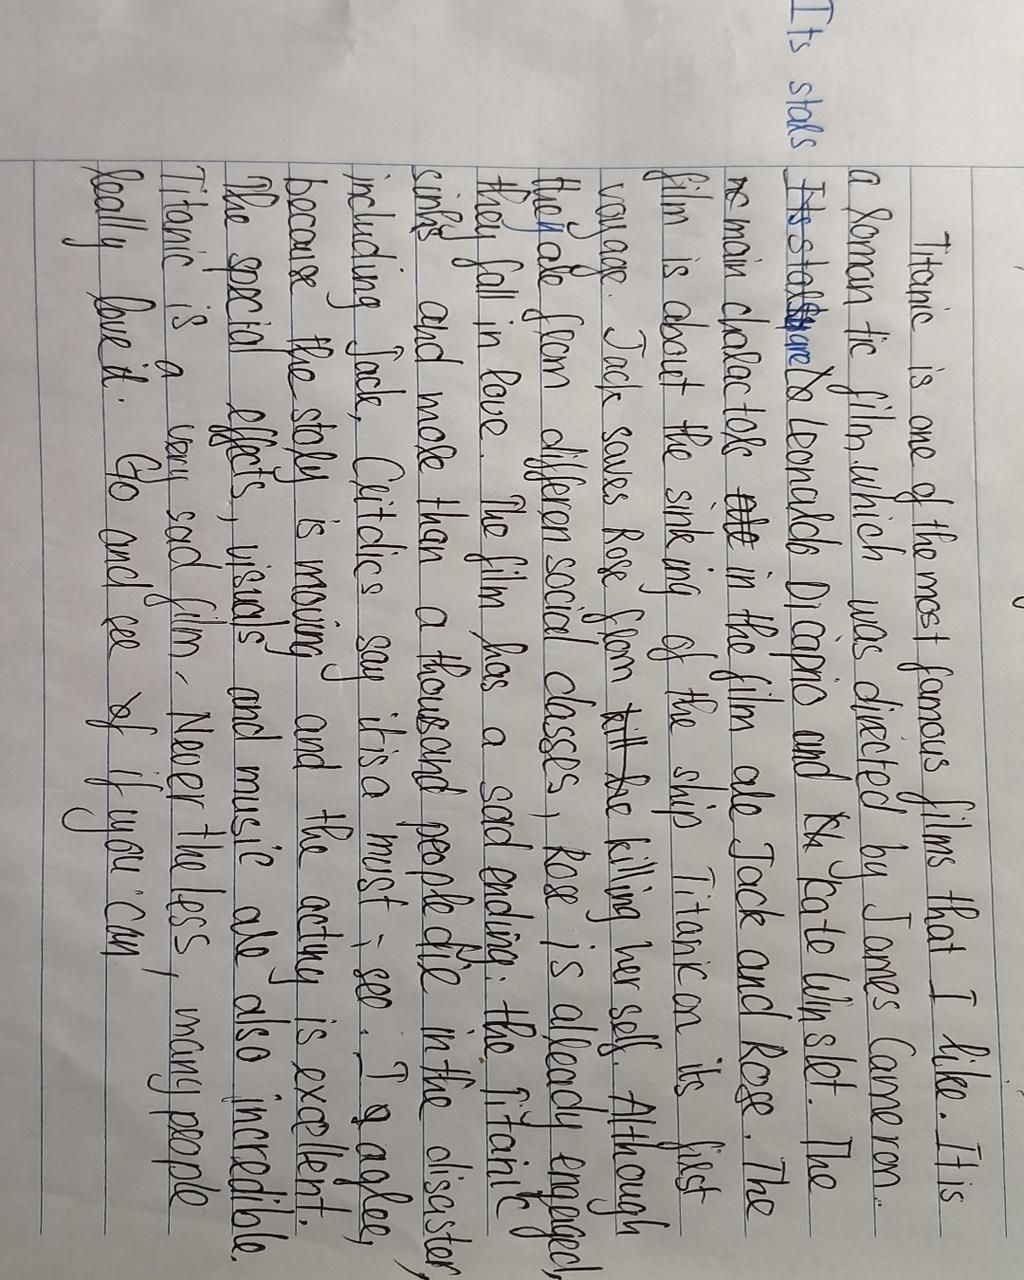 Titanic is one of the most famous films that I like. It is
a Roman tic film, which was directed by James Cameron.
Its stars Its stars are Leonardo Dicaprio and Kate Winslet. The
main characters in the film are Jack and Rose. The
film is about the sinking of the ship Titanic on its first
voyage. Jack saves Rose from killing her self. Although
they are from differen social classes, Rose is already engaged,
they fall in love. The film has a sad ending: the Titanic
sinks and more than a thousand people die in the disaster,
including Jack, Critdics say it is a must-see. I agree,
because the story is moving and the acting is excellent.
The special effects, visuals and music are also incredible.
Titanic is a very sad film. Never the less, many people
really love it. Go and see if you can